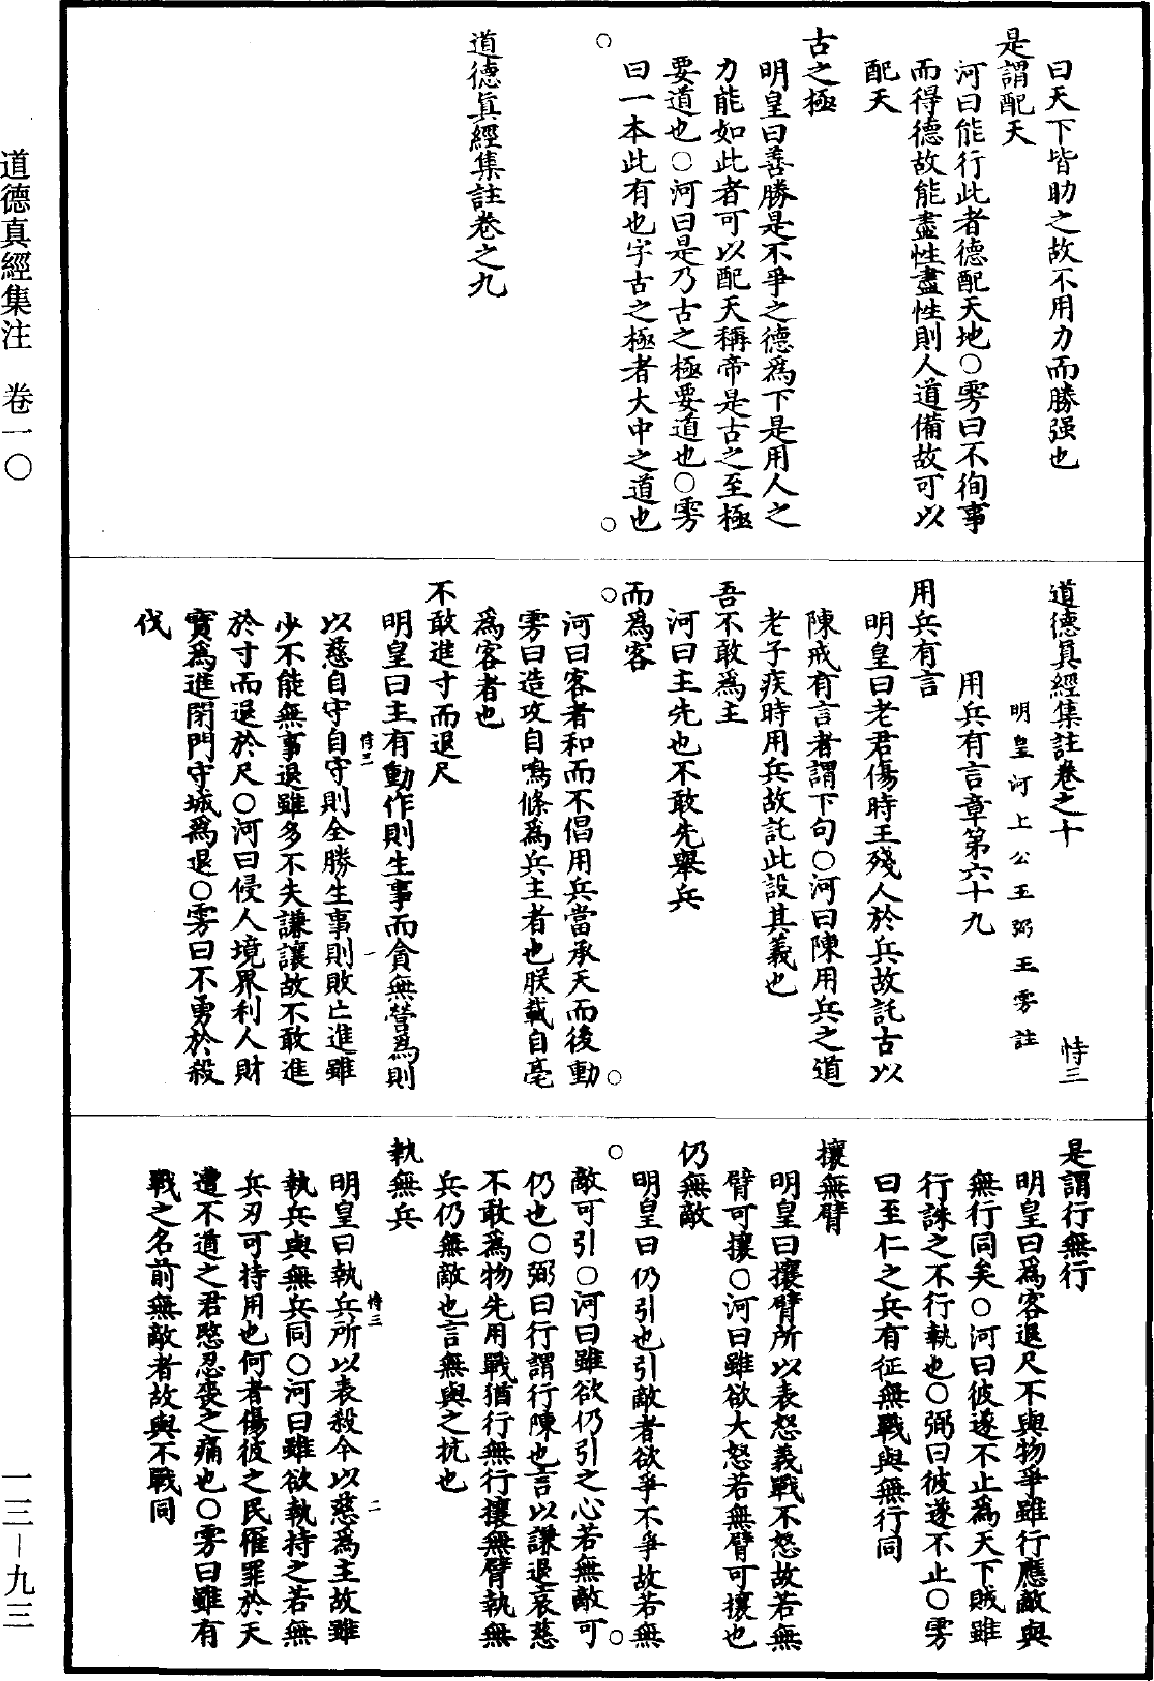 曰天下皆助之故不用力而勝强也
是謂配天
河曰能行此者德配天地○雱曰不徇事
而得德故能盡性盡性則人道備故可以
配天
古之極
明皇曰善勝是不爭之德爲下是用人之
力能如此者可以配天稱帝是古之至極
要道也○河曰是乃古之極要道也○雱
曰一本此有也字古之極者大中之道也
道德眞經集註卷之九
道德眞經集註卷之十 恃三
明皇河上公王弼王雱註
用兵有言章第六十九
用兵有言
明皇曰老君傷時王殘人於兵故託古以
陳戒有言者謂下句○河曰陳用兵之道
老子疾時用兵故託此設其義也
吾不敢爲主
河曰主先也不敢先舉兵
而爲客
河曰客者和而不倡用兵當承天而後動
雱曰造攻自鳴條爲兵主者也朕載自亳
爲客者也
不敢進寸而退尺
明皇曰主有動作則生事而貪無營爲則
恃三 一
以慈自守自守則全勝生事則敗亡進雖
少不能無事退雖多不失謙讓故不敢進
於寸而退於尺○河曰侵人境界利人財
寶爲進閉門守城爲退○雱曰不勇於殺
伐
是謂行無行
明皇曰爲客退尺不與物爭雖行應敵與
無行同矣○河曰彼遂不止爲天下賊雖
行誅之不行執也○弼曰彼遂不止○雱
曰至仁之兵有征無戰與無行同
攘無臂
明皇曰攘臂所以表怒義戰不怒故若無
臂可攘○河曰雖欲大怒若無臂可攘也
仍無敵
明皇曰仍引也引敵者欲爭不爭故若無
敵可引○河曰雖欲仍引之心若無敵可
仍也○弼曰行謂行陳也言以謙退哀慈
不敢爲物先用戰猶行無行攘無臂執無
兵仍無敵也言無與之抗也
執無兵
恃三 二
明皇曰執兵所以表殺今以慈爲主故雖
執兵與無兵同○河曰雖欲執持之若無
兵刃可持用也何者傷彼之民罹罪於天
遭不道之君愍忍喪之痛也○雱曰雖有
戰之名前無敵者故與不戰同
道德真經集注 卷一〇
一三—九三